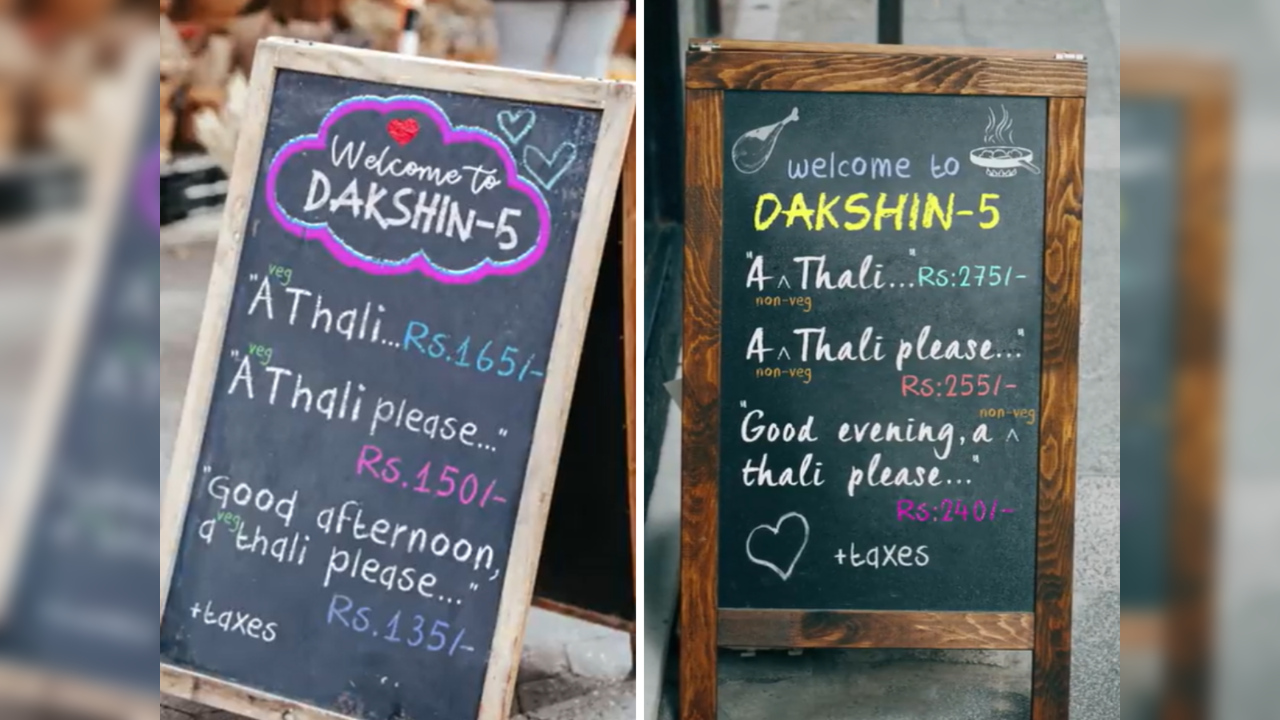 Welcome to
DAKSHIN-5
veg
"A Thali...Rs.165/-
veg
"A Thali please..."
Rs.150/-
"Good afternoon,
veg
a thali please..."
Rs.135/-
+taxes
welcome to
DAKSHIN-5
"A ^ Thali..." Rs:275/-
non-veg
A ^ Thali please..."
non-veg
Rs:255/-
non-veg
"Good evening, a ^
thali please..."
Rs:240/-
+taxes